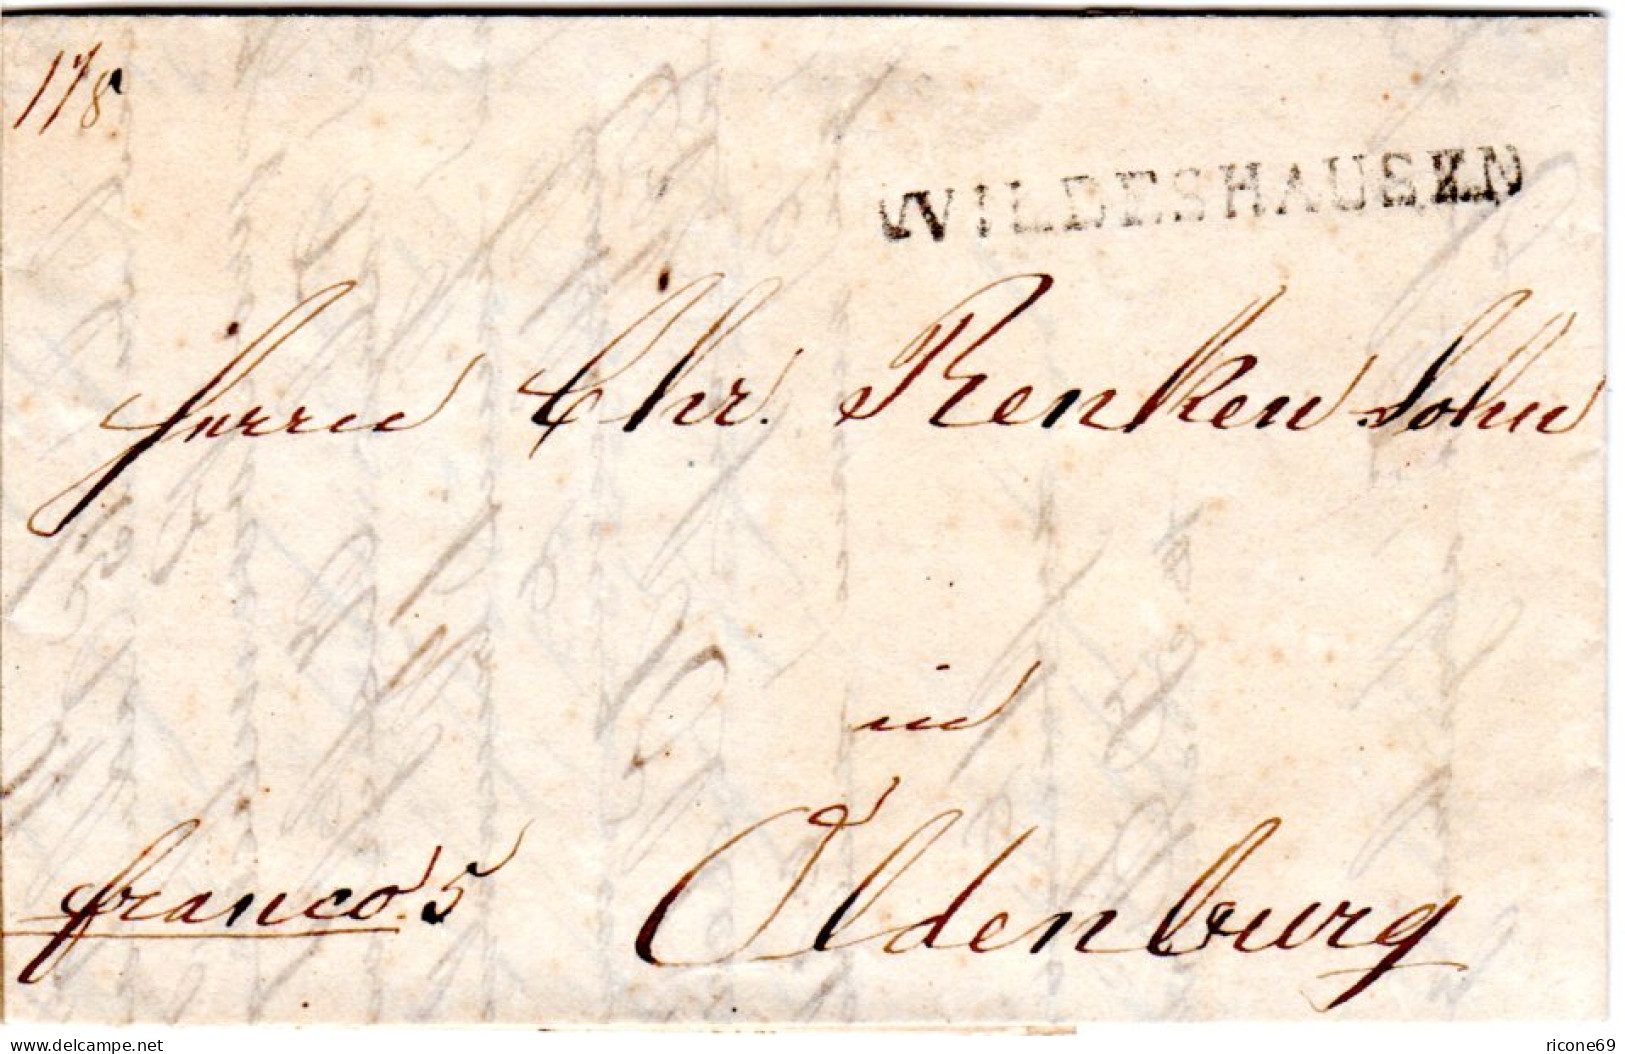 11/8
WILDESHAUSEN
Herrn Chr. Renken Sohn
in
franco. 5 Oldenburg
www.delcampe.net
ricone69